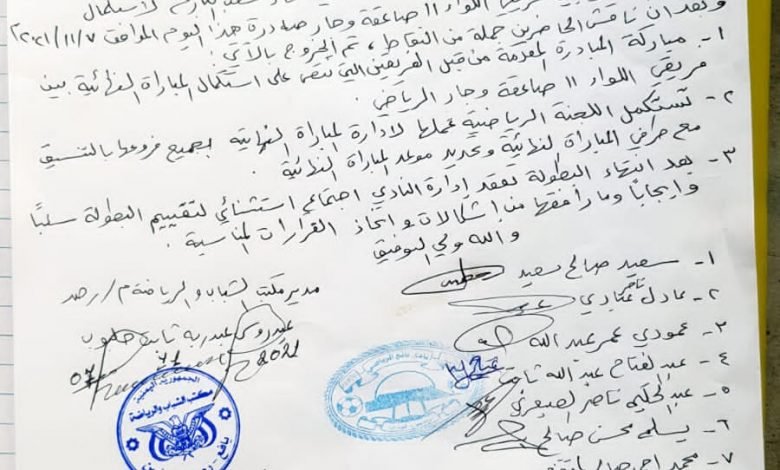 فريقي اللواء ١١ صاعقة وحار
وبعد ان ناقش الحاضرين جملة من النقاط ، تم الخروج بالآتي :
هذا اليوم الموافق ٢٠٢١/١١/٧
١- مباركة المبادرة المقدمة من قبل الفريقين التي تنص على استكمال المباراة النهائية بين
فريقي اللواء ١١ صاعقة وحار الرياضي .
٢- تستكمل اللجنة الرياضية عملها لادارة المباراة النهائية بجميع فروعها بالتنسيق
مع طرفي المباراة النهائية وتحديد موعد المباراة النهائية .
٣- بعد انتهاء البطولة تعقد ادارة النادي اجتماع استثنائي لتقييم البطولة سلباً
وايجاباً وما رافقها من اشكالات و اتخاذ القرارات المناسبة .
والله ولي التوفيق
١- سعيد صالح سعيد
٢- عادل ناصر عبادي
٣- عمودي عمر عبد الله
٤- عبد الفتاح عبد الله ثابت
٥- عبد الحكيم ناصر
٦- يسلم محسن صالح
٧- محمد احمد صالح
مدير مكتب الشباب والرياضة م/ رصد
عيدروس عبدربه ثابت
07 11 2021
الجمهورية اليمنية
مكتب الشباب والرياضة
يافع - رصد